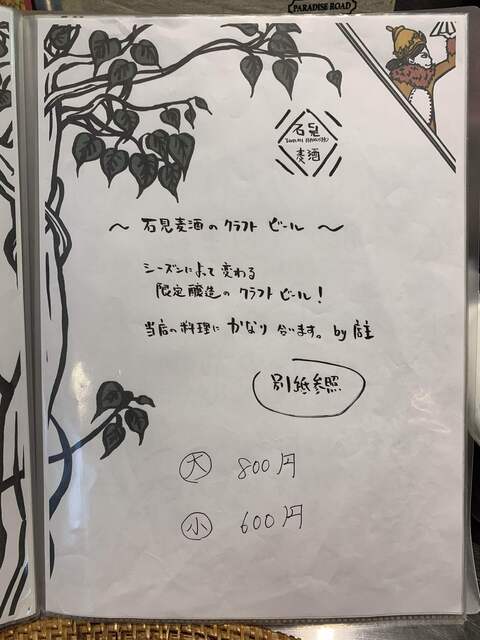 PARADISE ROAD
石見
麦酒
~ 石見麦酒のクラフト ビール ~
シーズンによって変わる
限定醸造のクラフトビール!
当店の料理にかなり合います。by 店主
別紙参照
大 800円
小 600円